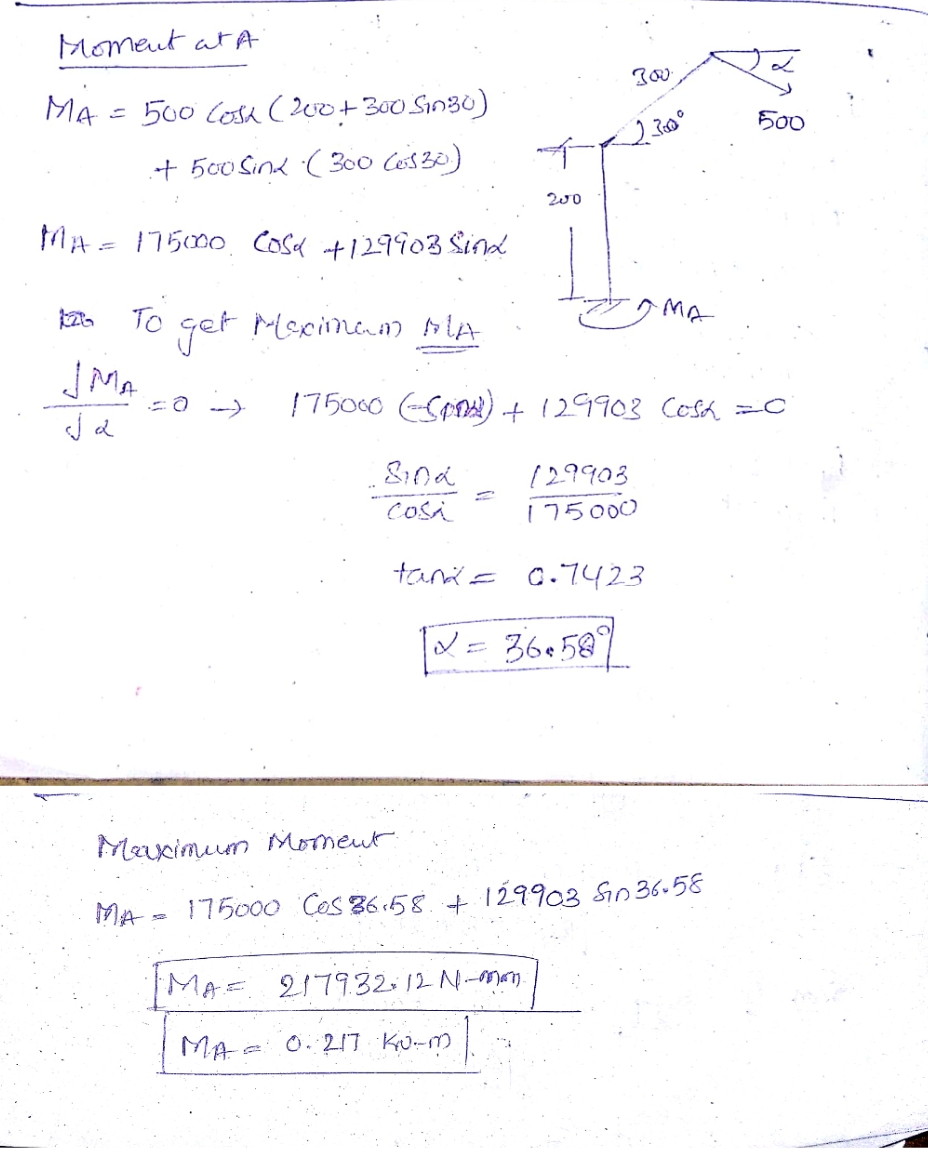 Moment at A
MA = 500 Cosα (200 + 300 Sin30)
+ 500 Sinα (300 Cos30)
MA = 175000 Cosα + 129903 Sinα
To get Maximum MA
dMA/dα = 0 → 175000 (-Sinα) + 129903 Cosα = 0
Sinα/cosα = 129903/175000
tanα = 0.7423
α = 36.58°
300
α
30°
500
200
MA
Maximum Moment
MA = 175000 Cos 36.58 + 129903 Sin 36.58
MA = 217932.12 N-mm
MA = 0.217 KN-m